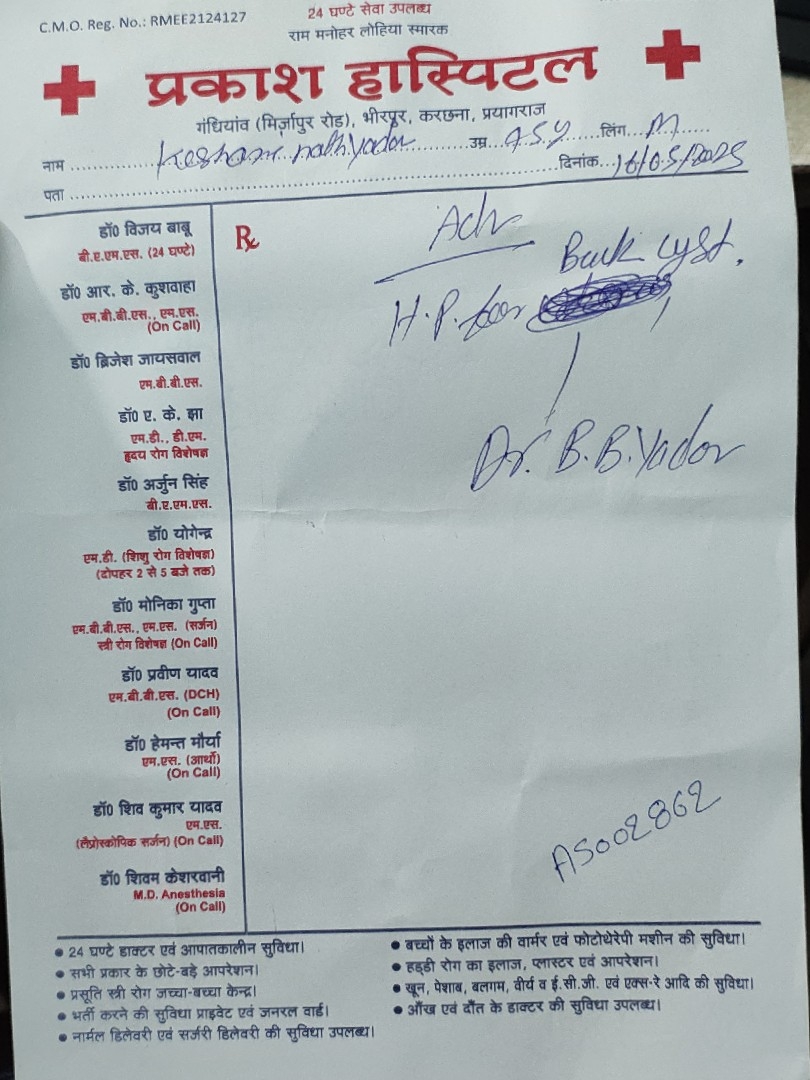 C.M.O. Reg. No.: RMEE2124127
24 घण्टे सेवा उपलब्ध
राम मनोहर लोहिया स्मारक
प्रकाश हास्पिटल
गंधियांव (मिर्ज़ापुर रोड), भीरपुर, करछना, प्रयागराज
नाम ............... nath Yadav ............... उम्र... ...लिंग... M......
पता ...............दिनांक...16/05/2025
डॉ0 विजय बाबू
बी.ए.एम.एस. (24 घण्टे)
डॉ0 आर. के. कुशवाहा
एम.बी.बी.एस., एम.एस.
(On Call)
डॉ0 ब्रिजेश जायसवाल
एम.बी.बी.एस.
डॉ0 ए. के. झा
एम.डी., डी.एम.
हृदय रोग विशेषज्ञ
डॉ0 अर्जुन सिंह
बी.ए.एम.एस.
डॉ0 योगेन्द्र
एम.डी. (शिशु रोग विशेषज्ञ)
(दोपहर 2 से 5 बजे तक)
डॉ0 मोनिका गुप्ता
एम.बी.बी.एस., एम.एस. (सर्जन)
स्त्री रोग विशेषज्ञ (On Call)
डॉ0 प्रवीण यादव
एम.बी.बी.एस. (DCH)
(On Call)
डॉ0 हेमन्त मौर्या
एम.एस. (आर्थो)
(On Call)
डॉ0 शिव कुमार यादव
एम.एस.
(लैप्रोस्कोपिक सर्जन) (On Call)
डॉ0 शिवम केशरवानी
M.D. Anesthesia
(On Call)
Rx
Adv
Back cyst.
H.P. for
Dr. B.B. Yadav
AS002862
• 24 घण्टे डाक्टर एवं आपातकालीन सुविधा।
• सभी प्रकार के छोटे-बड़े आपरेशन।
• प्रसूति स्त्री रोग जच्चा-बच्चा केन्द्र।
• भर्ती करने की सुविधा प्राइवेट एवं जनरल वार्ड।
• नार्मल डिलेवरी एवं सर्जरी डिलेवरी की सुविधा उपलब्ध।
• बच्चों के इलाज की वार्मर एवं फोटोथेरेपी मशीन की सुविधा।
• हड्डी रोग का इलाज, प्लास्टर एवं आपरेशन।
• खून, पेशाब, बलगम, वीर्य व ई.सी.जी. एवं एक्स-रे आदि की सुविधा।
• आँख एवं दाँत के डाक्टर की सुविधा उपलब्ध।